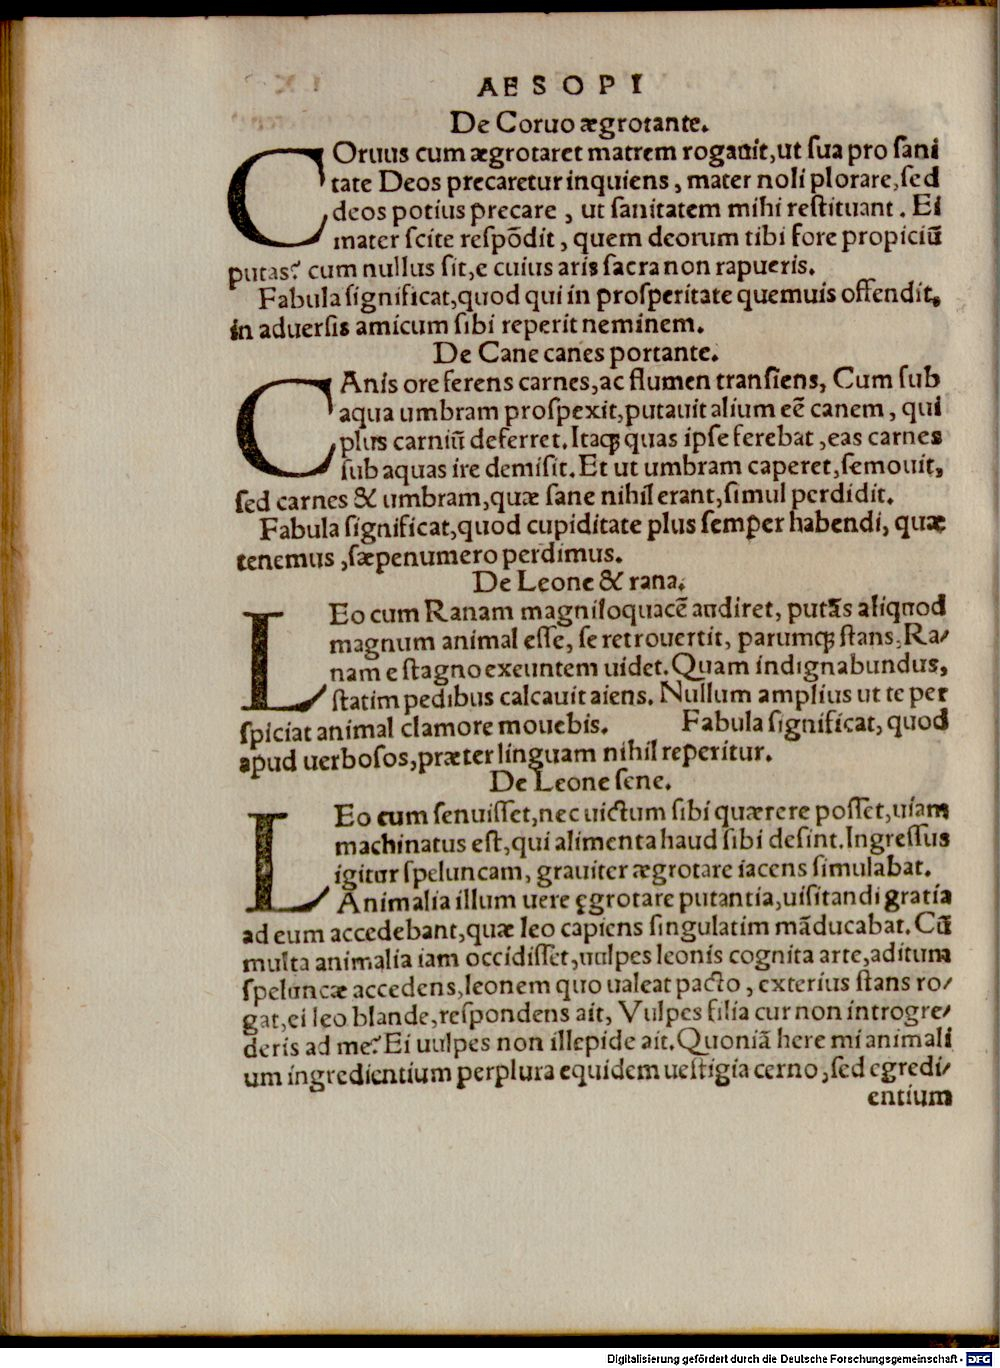 AESOPI
De Coruo ægrotante.
COruus cum ægrotaret matrem rogauit,ut sua pro sani
tate Deos precaretur inquiens, mater noli plorare,sed
deos potius precare, ut sanitatem mihi restituant. Ei
mater scite respõdit, quem deorum tibi fore propiciũ
putas? cum nullus sit,e cuius aris sacra non rapueris.
Fabula significat,quod qui in prosperitate quemuis offendit,
in aduersis amicum sibi reperit neminem.
De Cane canes portante.
CAnis ore ferens carnes,ac flumen transiens, Cum sub
aqua umbram prospexit,putauit alium eẽ canem, qui
plus carniũ deferret.Itaq; quas ipse ferebat,eas carnes
sub aquas ire demisit.Et ut umbram caperet,semouit,
sed carnes & umbram,quæ sane nihil erant,simul perdidit.
Fabula significat,quod cupiditate plus semper habendi, quæ
tenemus,sæpenumero perdimus.
De Leone & rana.
LEo cum Ranam magniloquacẽ audiret, putãs aliquod
magnum animal esse, se retrouertit, parumq; stans,Ra/
nam e stagno exeuntem uidet.Quam indignabundus,
statim pedibus calcauit aiens. Nullum amplius ut te per
spiciat animal clamore mouebis. Fabula significat, quod
apud uerbosos,præter linguam nihil reperitur.
De Leone sene.
LEo cum senuisset,nec uictum sibi quærere posset,uiam
machinatus est,qui alimenta haud sibi desint.Ingressus
igitur speluncam, grauiter ægrotare iacens simulabat.
Animalia illum uere ęgrotare putantia,uisitandi gratia
ad eum accedebant,quæ leo capiens singulatim mãducabat.Cũ
multa animalia iam occidisset,uulpes leonis cognita arte,aditum
speluncæ accedens,leonem quo ualeat pacto, exterius stans ro/
gat,ei leo blande,respondens ait, Vulpes filia cur non introgre/
deris ad me? Ei uulpes non illepide ait.Quoniã here mi animali
um ingredientium perplura equidem uestigia cerno,sed egredi/
entium
Digitalisierung gefördert durch die Deutsche Forschungsgemeinschaft - DFG